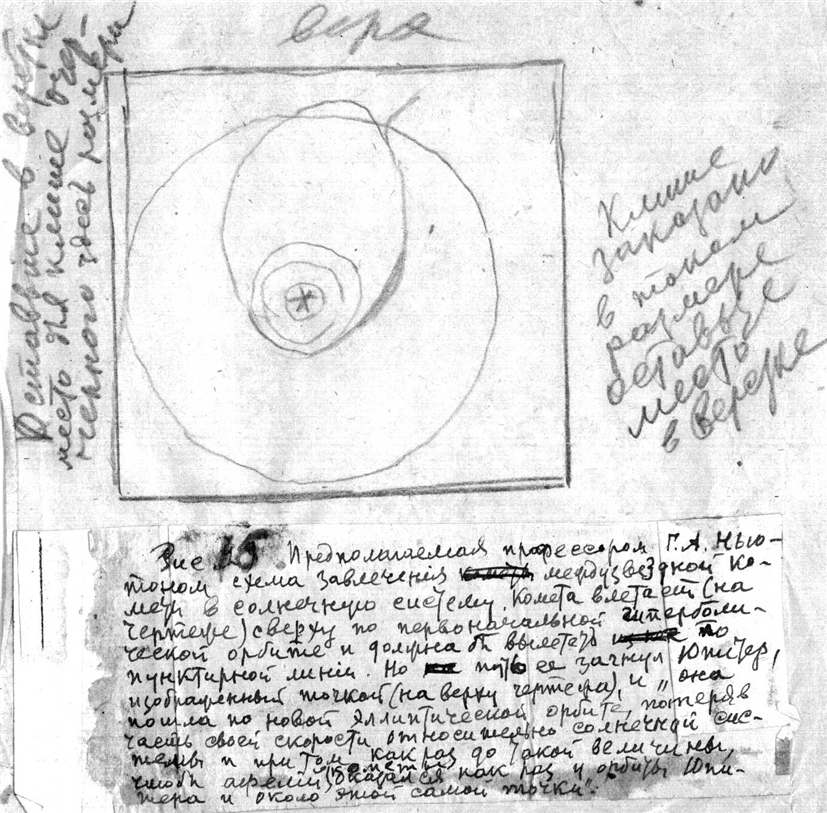 верх
Оставьте в верстке
место для клише очер-
ченного здесь размера
Клише
заказано
в таком
размере
Оставьте
место
в верстке
Рис 15. Предполагаемая профессором Г.А. Нью-
тоном схема завлечения междузвездной ко-
меты в солнечную систему. Комета влетает (на
чертеже) сверху по первоначальной гиперболи-
ческой орбите и должна бы вылететь по
пунктирной линіи. Но путь ее загнул Юпитер,
изображенный точкой (на верху чертежа), и она
пошла по новой эллиптической орбите, потеряв
часть своей скорости относительно солнечной сис-
темы и при том как раз до такой величины,
чтобы афелий кометы оказался как раз у орбиты Юпи-
тера и около этой самой точки.